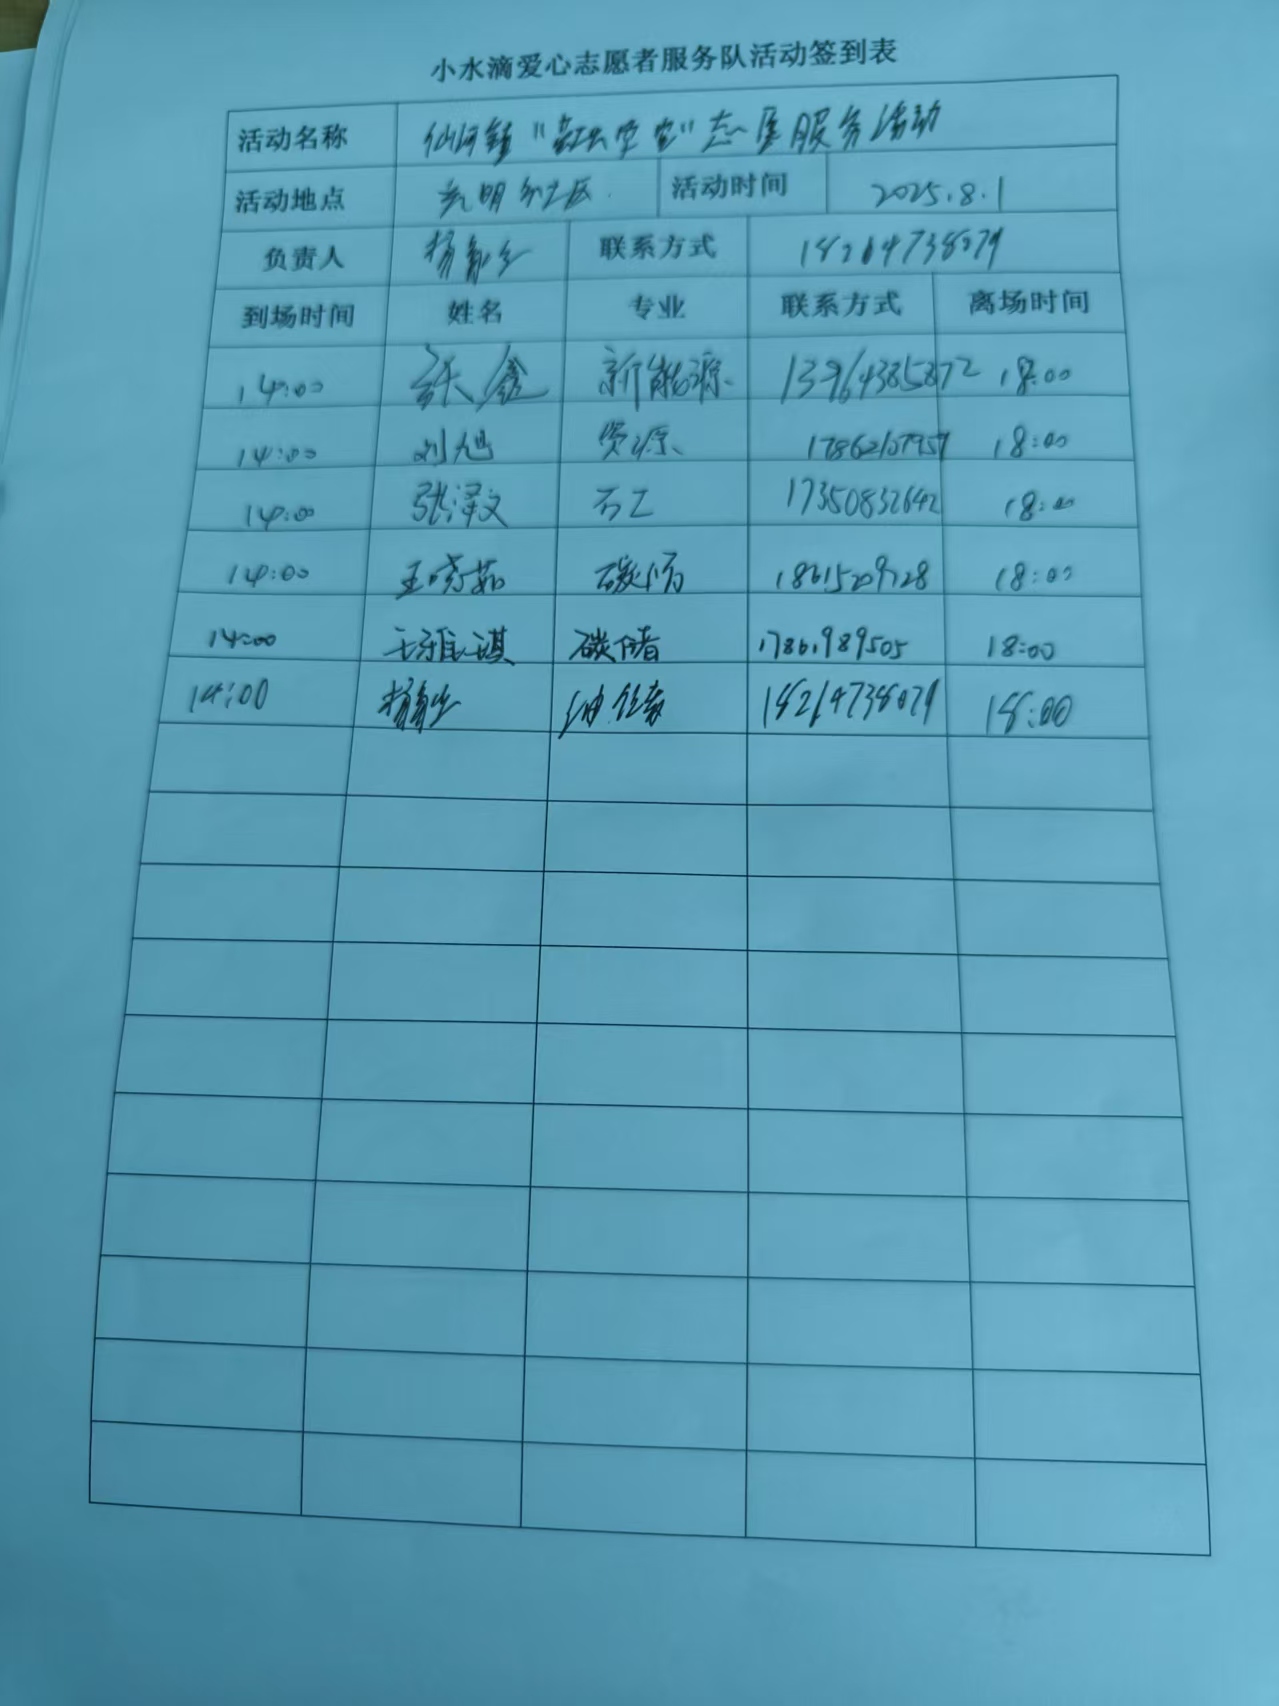 小水滴爱心志愿者服务队活动签到表
活动名称 仙河镇" "志愿服务活动
活动地点 社区 活动时间 2025.8.1
负责人 联系方式 18264738079
到场时间 姓名 专业 联系方式 离场时间
14:00 张鑫 新能源 13964385872 18:00
14:00 刘旭 资源 18:00
14:00 张泽文 石工 17350832642 18:00
14:00 王晓茹 碳储 18615209728 18:00
14:00 王雅琪 碳储 17861989505 18:00
14:00 油 18264738079 18:00